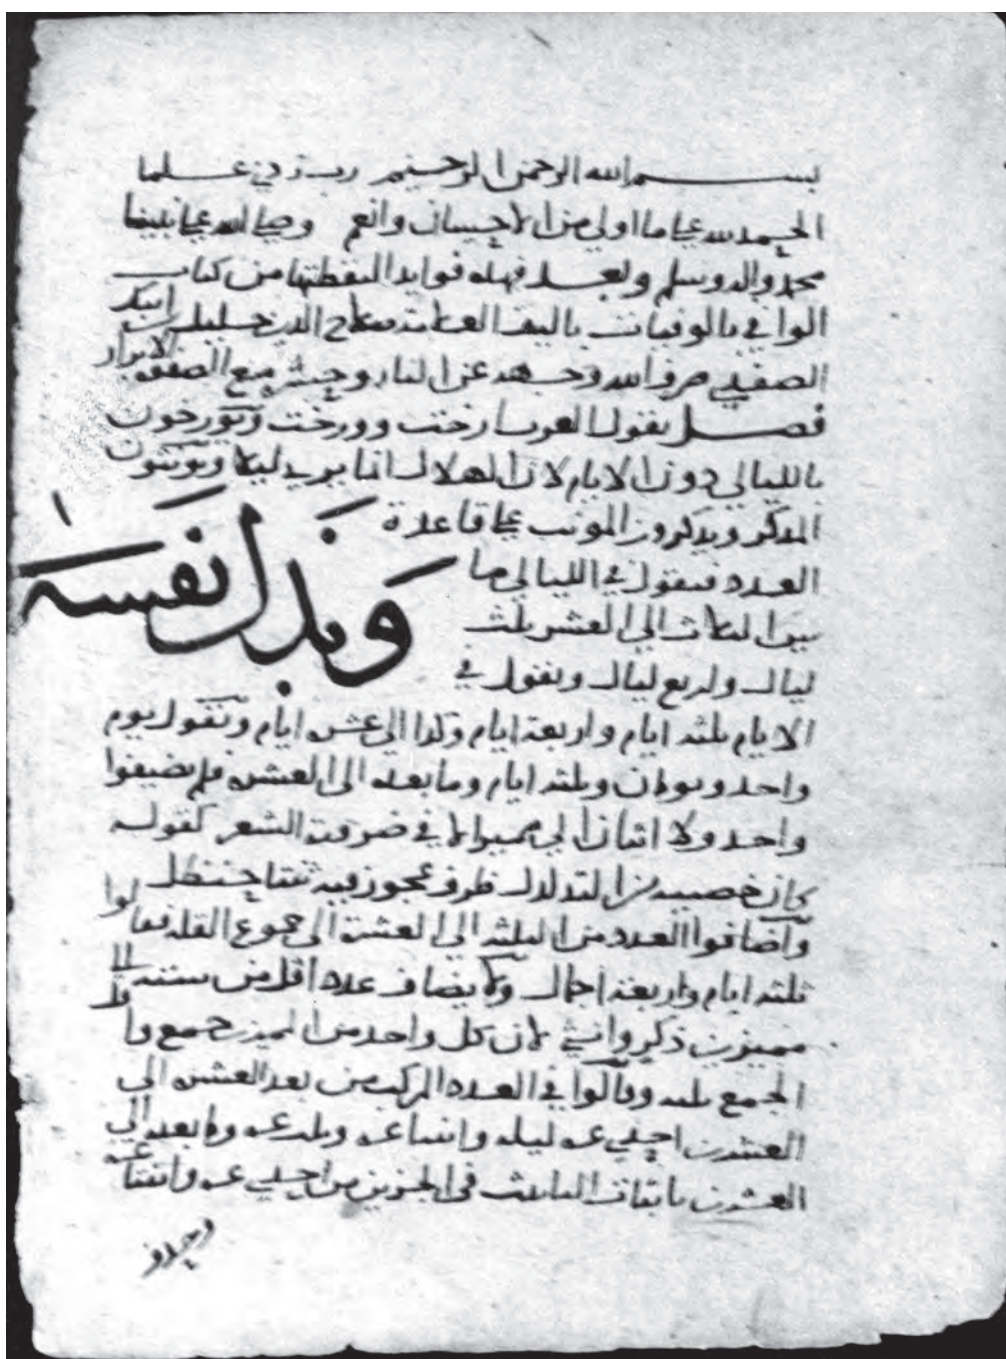 بسم الله الرحمن الرحيم رب زدني علما
الحمد لله على ما اولى من الاحسان وانعم وصلى الله على نبينا
محمد واله وسلم وبعد فهذه فوايد التقطتها من كتاب
الوافي بالوفيات تاليف العلامة صلاح الدين خليل بن ايبك
الصفدي صرف الله وجهه عن النار وحشره مع الصفوة الابرار
فصل تقول العرب ارخت وورخت ويورخون
بالليالي دون الايام لان الهلال انما يرى ليلا ويونثون
المذكر ويذكرون المونث على قاعدة
العدد فتقول في الليالي ما
بين الثلاث الى العشر ثلث
ليال واربع ليال وتقول في
الايام ثلثة ايام واربعة ايام وكذا الى عشرة ايام وتقول يوم
واحد ويومان وثلثة ايام وما بعده الى العشرة فلم يضيفوا
واحد ولا اثنان الى مميز الا في ضرورة الشعر كقوله
كان خصييه من التدلدل ظرف عجوز فيه ثنتا حنظل
واضافوا العدد من الثلثة الى العشرة الى جموع القلة فقالوا
ثلثة ايام واربعة اجمال ولا يضاف عدد اقل من ستة الى
مميزين ذكر وانثى لان كل واحد من المميزين جمع واقل
الجمع ثلثة وقالوا في العدد المركب من بعد العشرة الى
العشرين احدى عشرة ليلة واثنتا عشرة وثلث عشرة وما بعده الى
العشرين باثبات التانيث في الجزين من احدى عشرة واثنتا عشرة
وبذل نفسه
١
وحذف